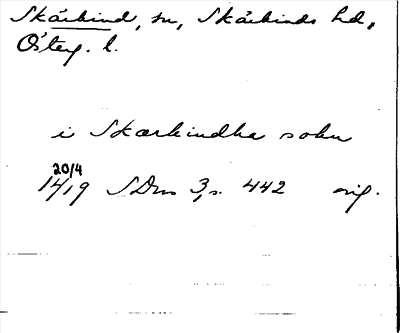 Skärkind, sn, Skärkinds hd,
Österg. l.
i Skærkindha sokn
20/4
1419 SDns 3, s. 442 orig.